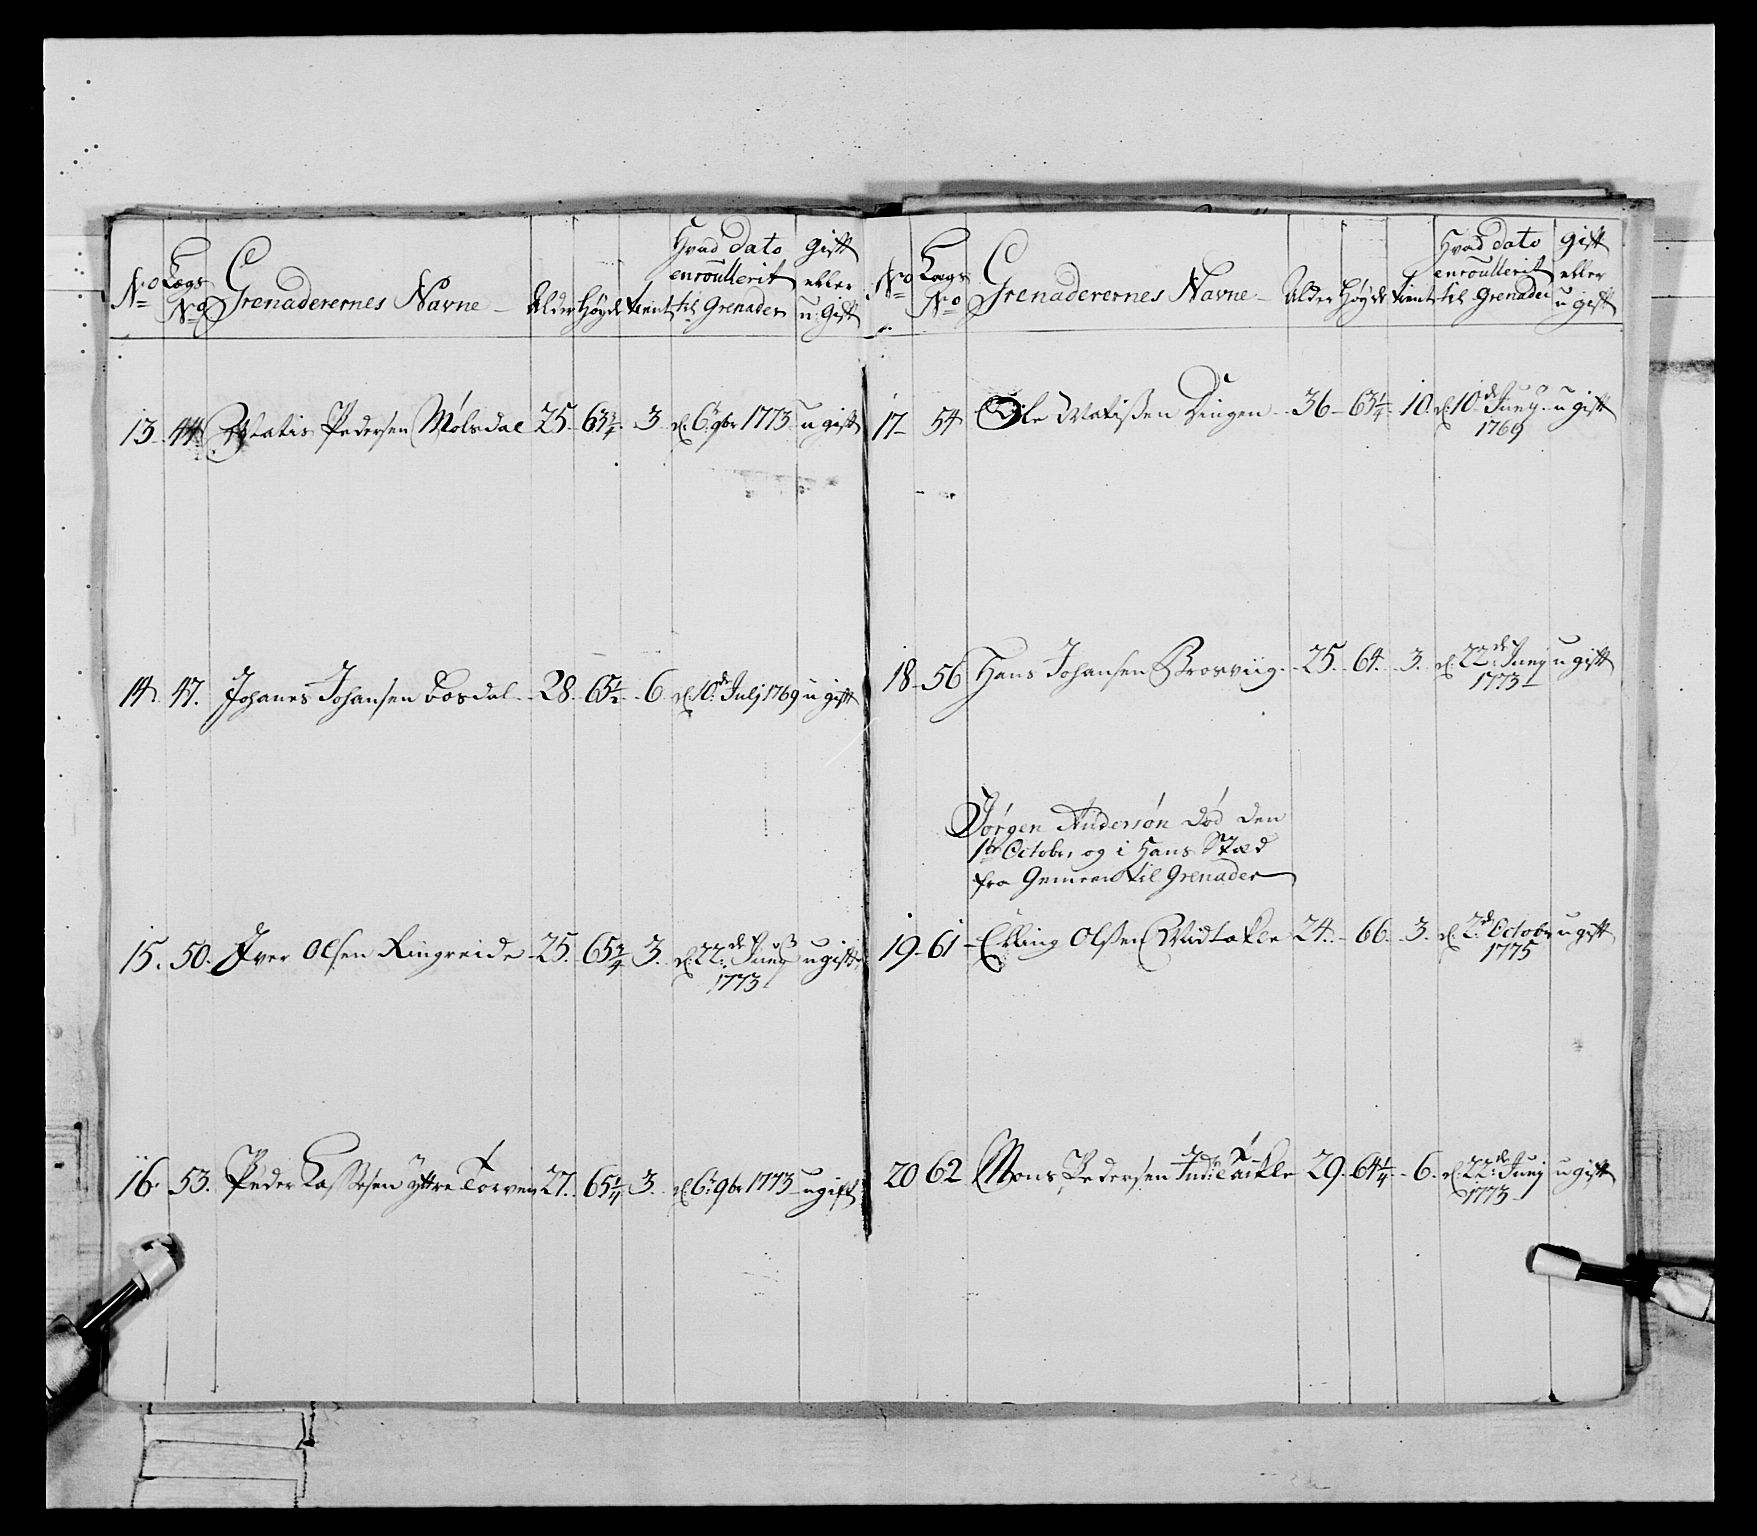 No Lægs No Grenaderernes Navne Alder Høyde tient Hvad dato enroullerit til Grenader gift eller u gift
13. 44 Matis Pedersen Mølsdal 25. 63 3/4. 3. d. 6. 9br 1773. u gift
14. 47. Johanes Johansen Bosdal 28. 65 1/2 6 d. 10de Julj 1769 u gift
15. 50. Iver Olsen Ringereide 25. 65 3/4 3. d. 22de Junÿ u gift
1773
16. 53. Peder Lassesen yttre Torven 27. 65 1/4 3. d. 6. 9br 1773 u gift
No Lægs No Grenaderernes Navne Alder Høyde tient Hvad dato enroullerit til Grenader gift eller u gift
17 54 Ole Matissen Dingen 36 63 1/4. 10. d. 10de Junÿ u gift
1769
18 56 Hans Johansen Brosviig 25. 64. 3. d. 22de Junj u gift
1773
Jørgen Andersøn død den
1te October, og i Hans Stæd
fra Gemeen til Grenader
19 61 Elling Olssen Widtakle 24. 66. 3. d. 2de October u gift
1775
20 62 Mons Pedersen Ind: Takle 29. 64 1/4 6. d. 22de Junj u gift
1773